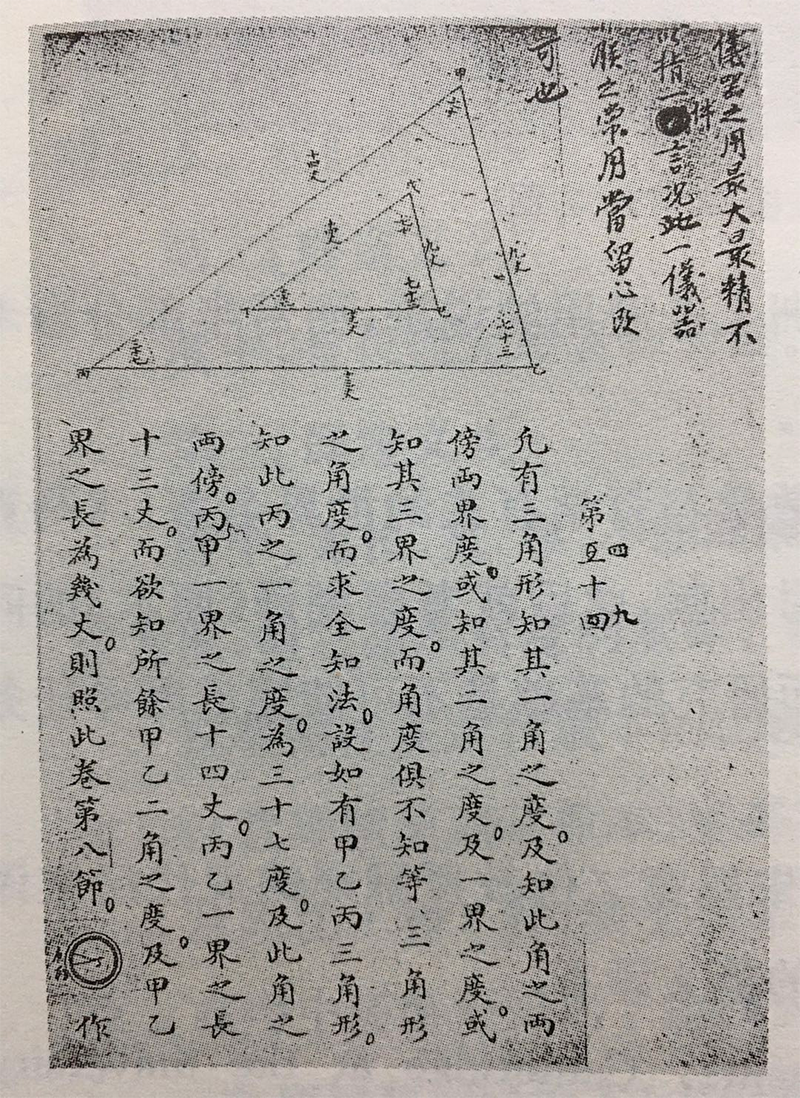 儀器之用最大最精不
指一件言況此一儀器
朕之常用當留心改
可也
第五十四
四九
凢有三角形知其一角之度。及知此角之兩
傍兩界度。或知其二角之度。及一界之度。或
知其三界之度。而角度俱不知等、三角形
之角度。而求全知法。設如有甲乙丙三角形。
知此丙之一角之度。為三十七度。及此角之
兩傍。丙甲一界之長十四丈。丙乙一界之長
十三丈。而欲知所餘甲乙二角之度。及甲乙
界之長為幾丈。則照此卷第八節。作
甲
十四丈
戊
九丈
七十三
三十七
七十三
丙
乙
丁